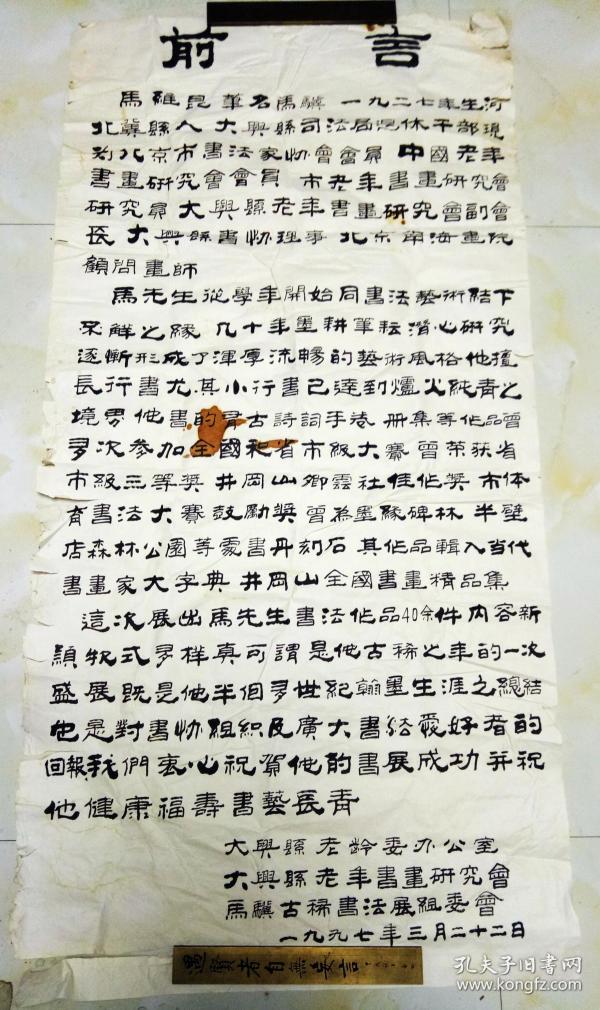 前言
馬維昆 筆名馬驥 一九二七年生河
北冀縣人 大興縣司法局退休干部現
为北京市書法家協會會員 中國老年
書畫研究會會員 市老年書畫研究會
研究員 大興縣老年書畫研究會副會
長 大興縣書協理事 北京南海畫院
顧問畫師
馬先生從學年開始同書法藝術結下
不解之緣 几十年墨耕筆耘潛心研究
逐漸形成了渾厚流暢的藝術風格他擅
長行書尤其小行書已達到爐火純青之
境界他書的習古詩詞手卷 册集等作品曾
多次参加全國和省市級大賽曾荣获省
市級三等奖 井岡山卿雲社佳作奖 市体
育書法大賽鼓勵奬曾為墨緣碑林 半壁
店森林公園等處書丹刻石 其作品輯入当代
書畫家大字典 井岡山全國書畫精品集
這次展出馬先生書法作品40余件内容新
穎板式多样真可謂是他古稀之年的一次
盛展既是他半個多世紀翰墨生涯之總結
也是對書協組織及廣大書法爱好者的
回報我們衷心祝賀他的書展成功并祝
他健康福壽書藝長青
大興縣老龄委办公室
大興縣老年書畫研究會
馬驥古稀書法展組委會
一九九七年三月二十二日
孔夫子旧書网
www.kongfz.com